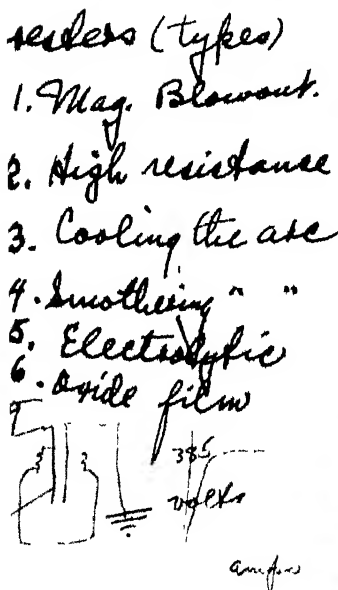 resters (types)
1. Mag. Blowout.
2. High resistance
3. Cooling the arc
4. Smothering " "
5. Electrolytic
6. Oxide film
385
volts